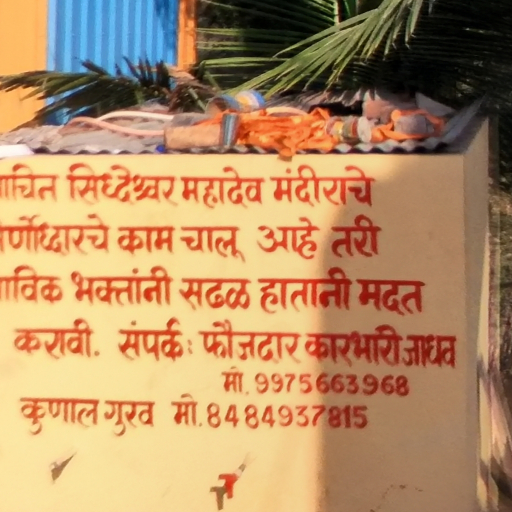 सिध्देश्वर महादेव मंदीराचे
काम चालू आहे तरी
भक्तांनी सढळ हातानी मदत
करावी. संपर्क: फौजदार कारभारी जाधव
मो. 9975663968
कुणाल गुरव मो. 8484937815